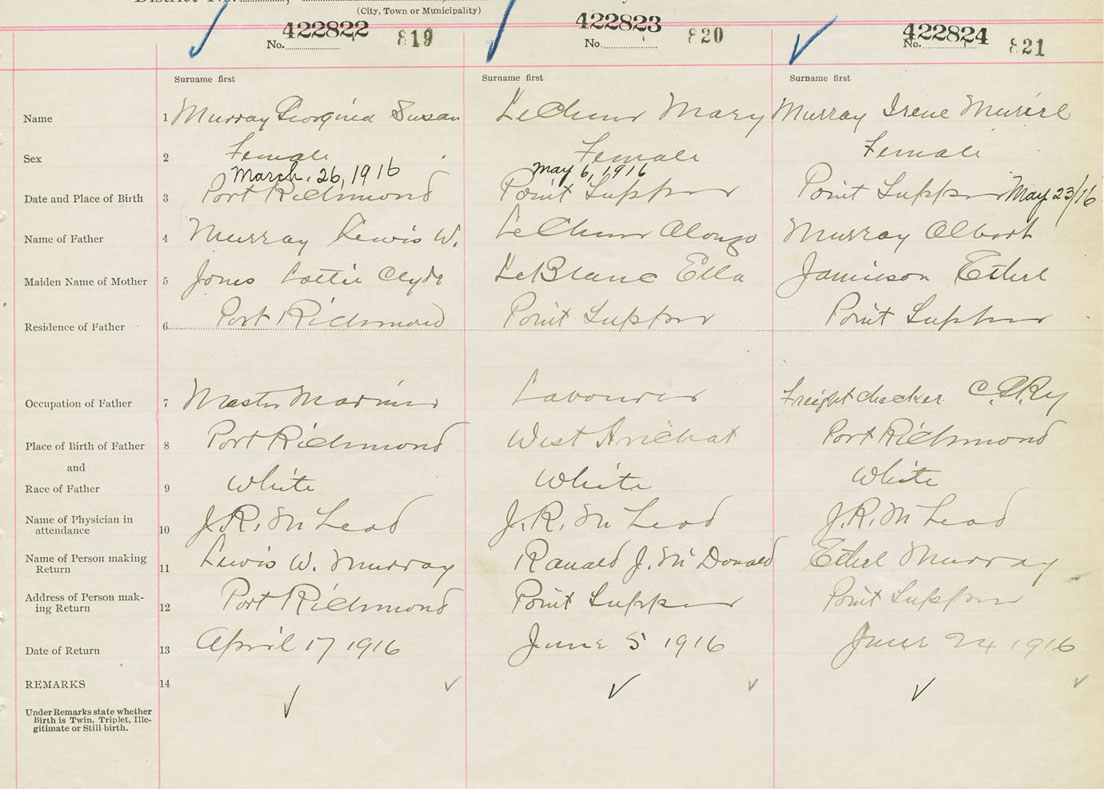 District No.
(City, Town or Municipality)
No. 422822 819 No. 422823 820 No. 422824 821
Surname first Surname first Surname first
Name 1 Murray Georgina Susan Mary Murray Irene Murirl
Sex 2 Female Female Female
March. 26, 1916 May 6, 1916
Date and Place of Birth 3 Port Richmond Point Tupper Point Tupper May 23/16
Name of Father 4 Murray Lewis W. Alonzo Murray Albert
Maiden Name of Mother 5 Jones Lottie Clyde LeBlanc Ella Jamieson Ethel
Residence of Father 6 Port Richmond Point Tupper Point Tupper
Occupation of Father 7 Master Mariner Labourer Freight checker C.G.Ry
Place of Birth of Father 8 Port Richmond West Arichat Port Richmond
and
Race of Father 9 White White White
Name of Physician in
attendance 10 J.R. McLeod J.R. McLeod J.R. McLeod
Name of Person making
Return 11 Lewis W. Murray Ranald J. McDonald Ethel Murray
Address of Person mak-
ing Return 12 Port Richmond Point Tupper Point Tupper
Date of Return 13 April 17 1916 June 5 1916 June 24 1916
REMARKS 14
Under Remarks state whether
Birth is Twin, Triplet, Ille-
gitimate or Still-birth.